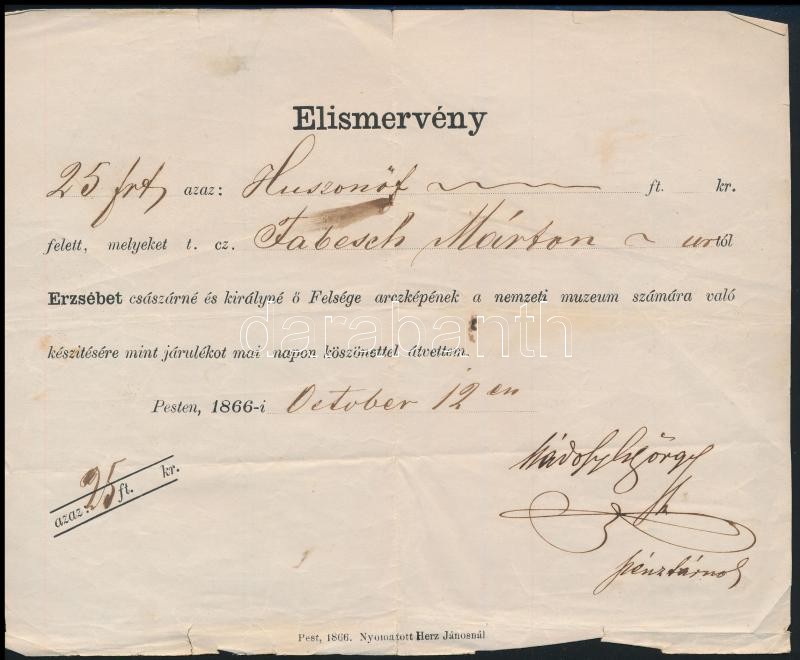 Elismervény
25 frt azaz: Huszonöt ft. kr.
felett, melyeket t. cz. Fabesch Márton úrtól
Erzsébet császárné és királyné ő Felsége arczképének a nemzeti muzeum számára való
készitésére mint járulékot mai napon köszönettel átvettem.
Pesten, 1866-i October 12 en
azaz: 25 ft. kr.
György
pénztárnok
Pest, 1866. Nyomatott Herz Jánosnál
darabanth